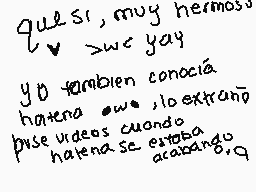 que si, muy hermoso
v >w< yay
yo tambien conocía
hatena •w• , lo extraño
puse videos cuando
hatena se estaba
acabando o,q